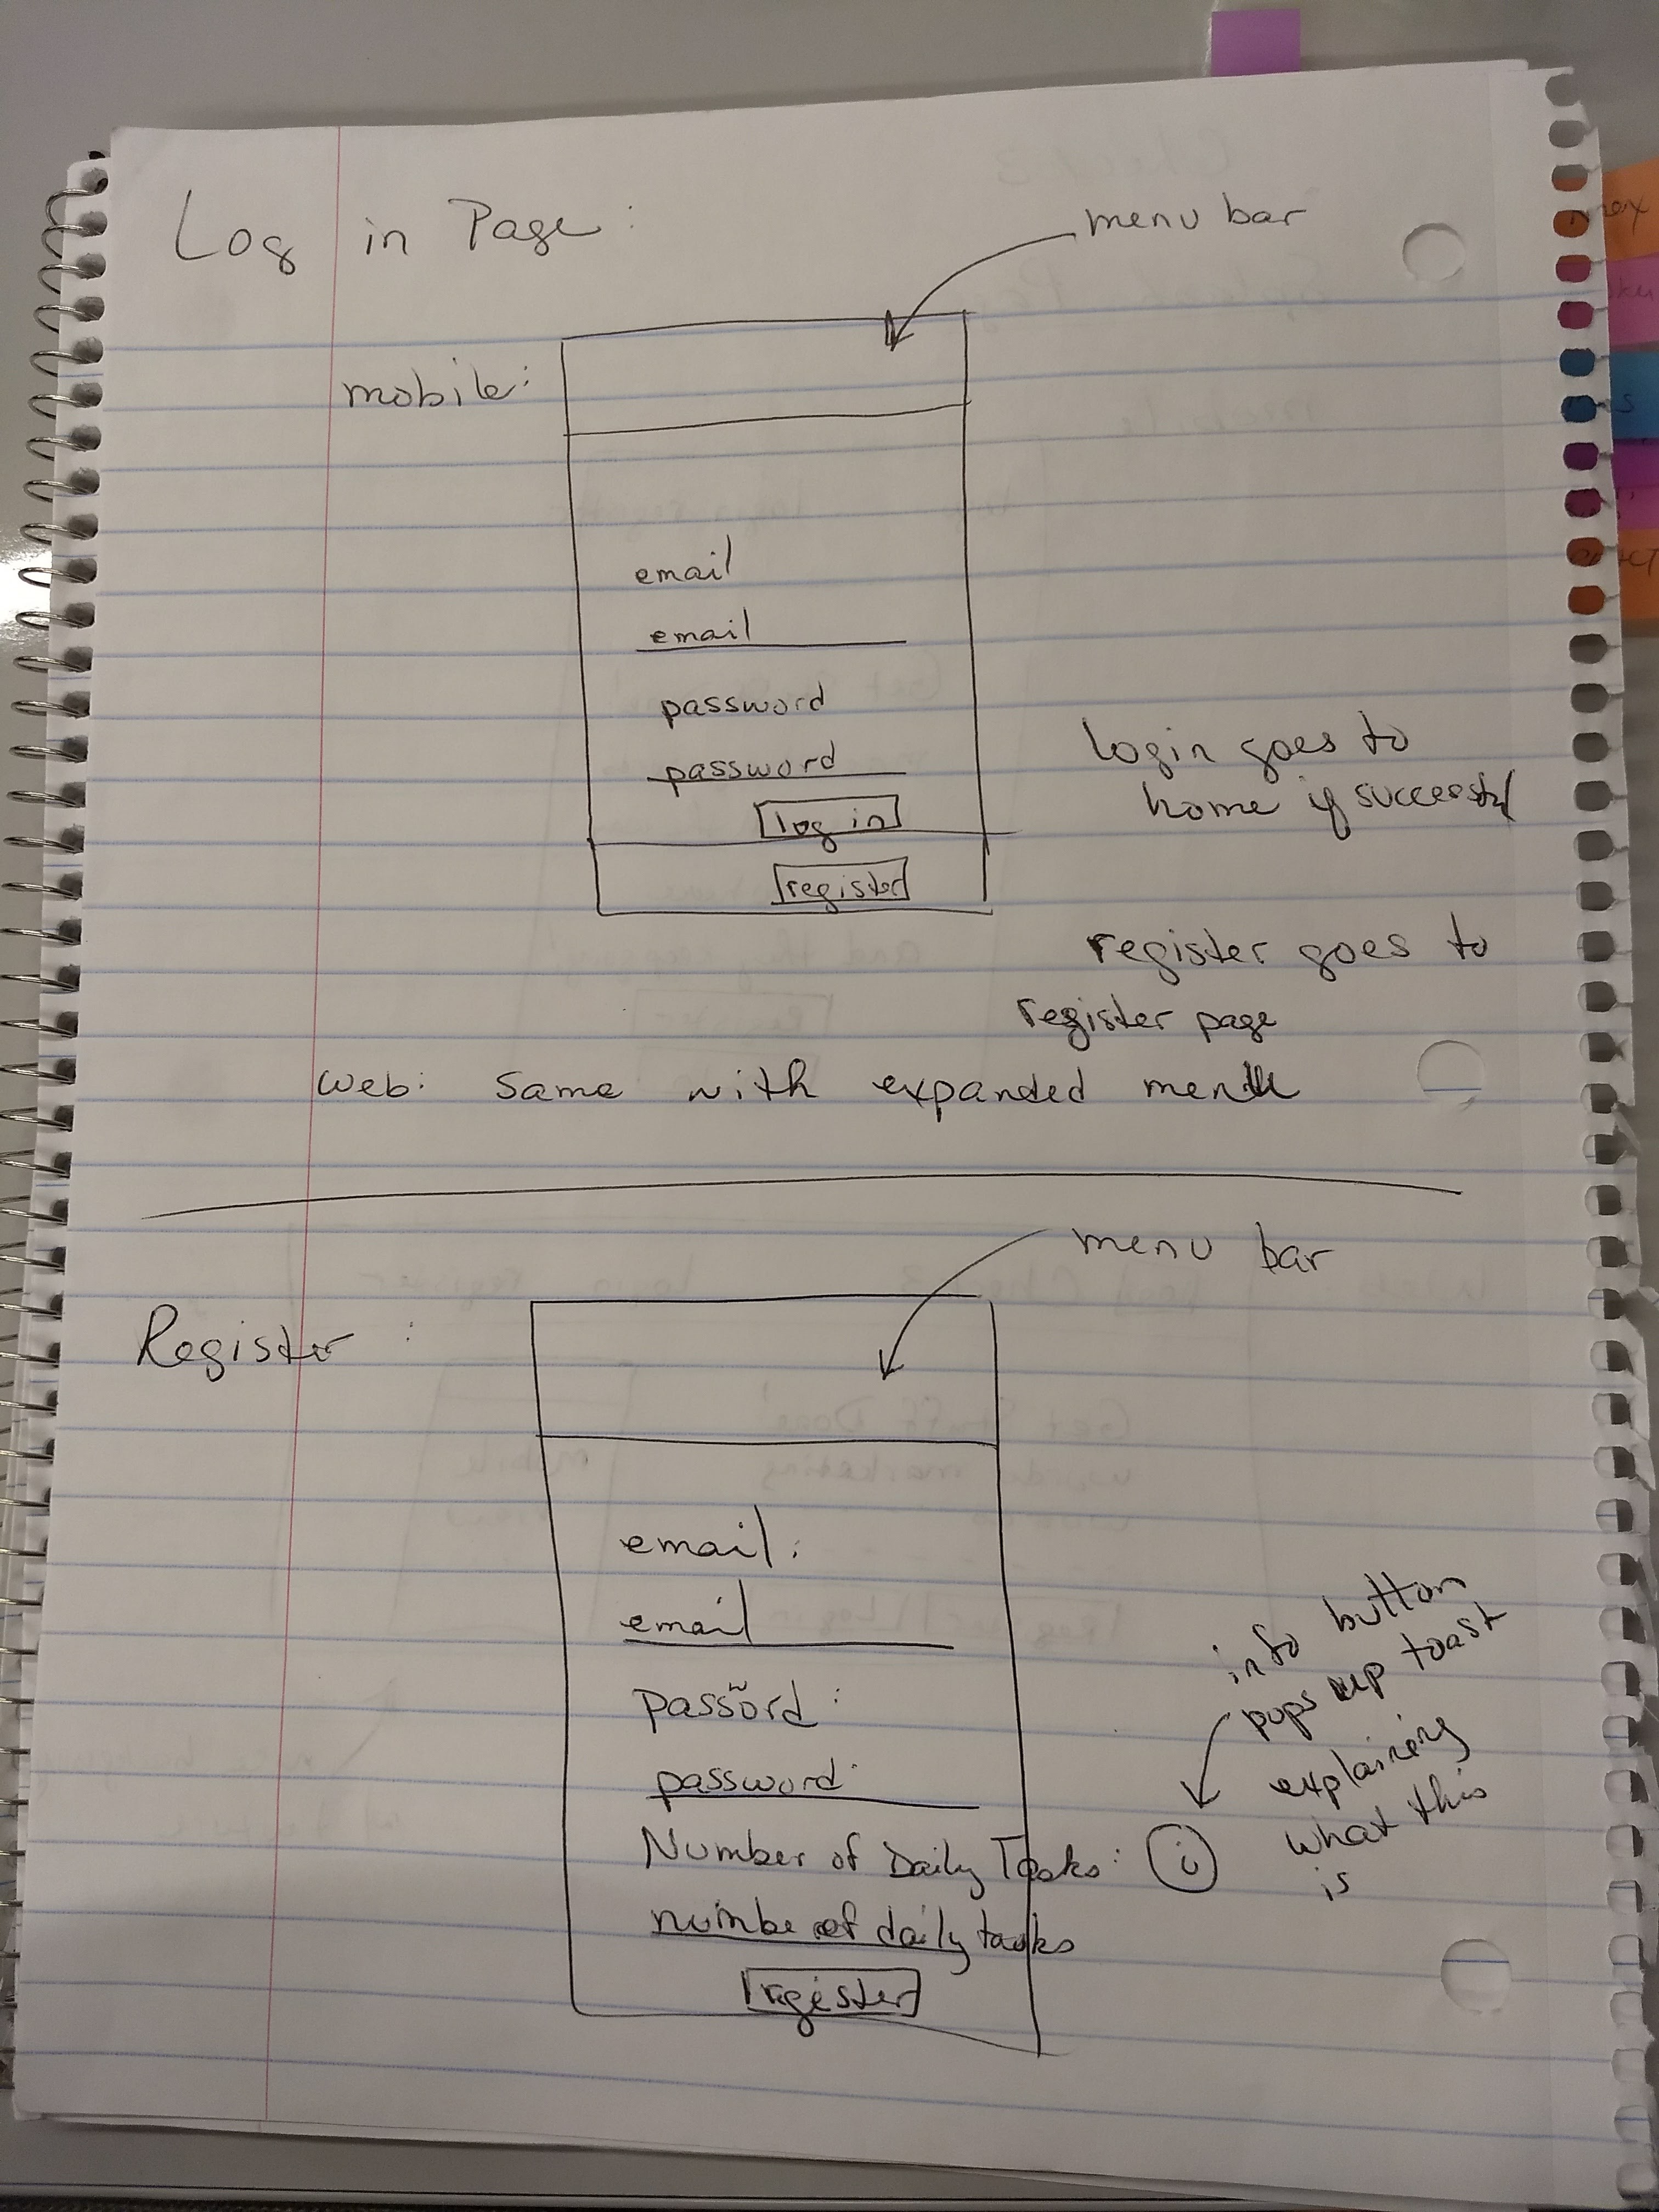 Log in Page:
menu bar
mobile:
email
email
password
password
log in
register
login goes to
home if successful
register goes to
register page
Web: Same with expanded menu
menu bar
Register:
email:
email
password:
password
Number of Daily Tasks: i
number of daily tasks
register
info button
pops up toast
explaining
what this
is